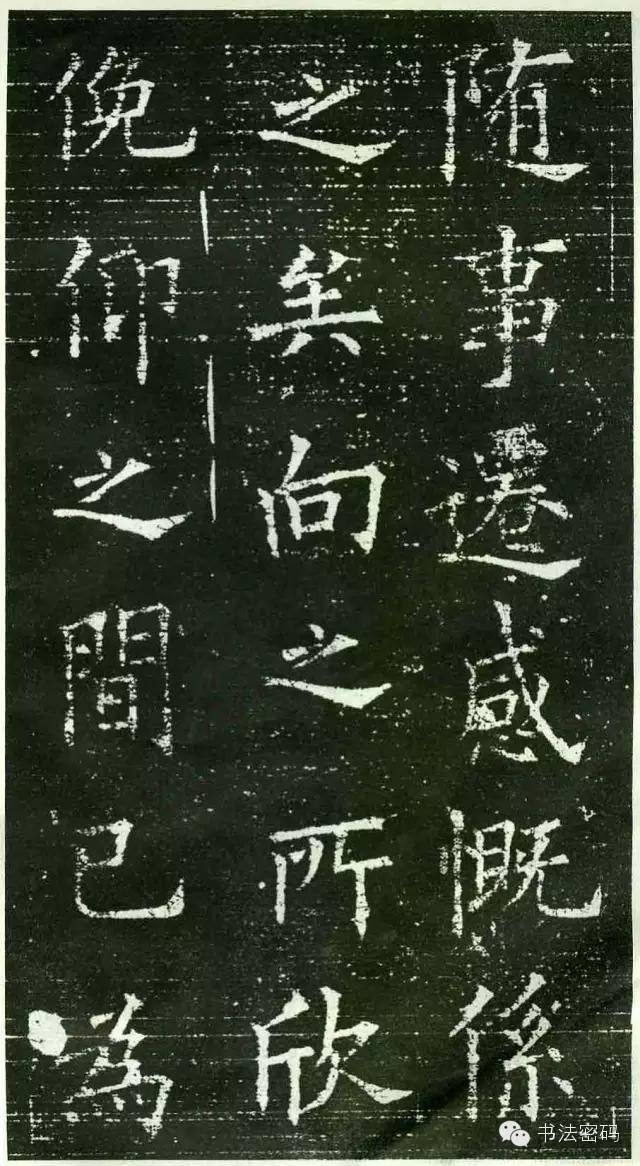 随事遷感慨係
之矣向之所欣
俛仰之間已為
书法密码